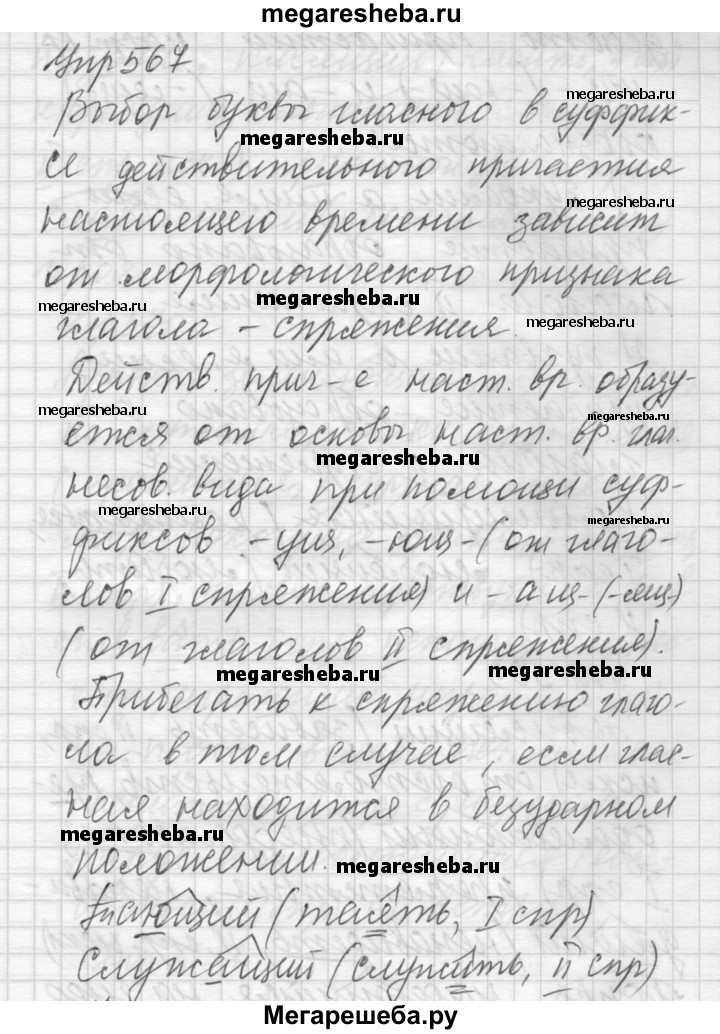 megaresheba.ru
Упр 567
Выбор буквы гласного в суффик-
megaresheba.ru
megaresheba.ru
се действительного причастия
megaresheba.ru
настоящего времени зависит
от морфологического признака
megaresheba.ru
megaresheba.ru
глагола – спряжения.
megaresheba.ru
Действ. прич-е наст. вр. образу-
megaresheba.ru
megaresheba.ru
ется от основы наст. вр. глаг.
megaresheba.ru
несов. вида при помощи суф-
megaresheba.ru
megaresheba.ru
фиксов -ущ, -ющ- (от глаго-
лов I спряжения) и -ащ- (-ящ-)
(от глаголов II спряжения).
megaresheba.ru
megaresheba.ru
Прибегать к спряжению глаго-
ла в том случае, если глас-
ная находится в безударном
megaresheba.ru
положении.
megaresheba.ru
Тающий (таять, I спр)
Служащий (служить, II спр)
Мегарешеба.ру